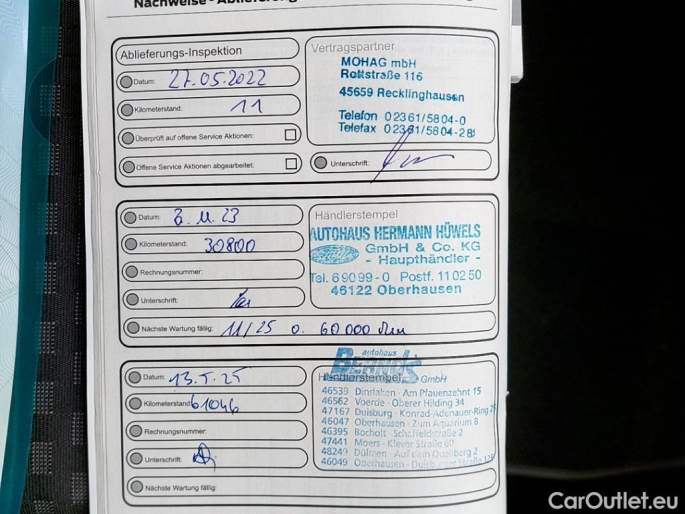 Nachweise - Ablieferung
Ablieferungs-Inspektion
Datum: 27.05.2022
Kilometerstand: 11
Überprüft auf offene Service Aktionen:
Offene Service Aktionen abgearbeitet:
Vertragspartner
MOHAG mbH
Rottstraße 116
45659 Recklinghausen
Telefon 02361/5804-0
Telefax 02361/5804-28
Unterschrift:
Datum: 8.11.23
Kilometerstand: 30800
Rechnungsnummer:
Unterschrift:
Händlerstempel
AUTOHAUS HERMANN HÜWELS
GmbH & Co. KG
- Haupthändler -
Tel. 69099-0 Postf. 110250
46122 Oberhausen
Nächste Wartung fällig: 11/25 o. 60000
Datum: 13.5.25
Kilometerstand: 61046
Rechnungsnummer:
Unterschrift:
autohaus
Händlerstempel GmbH
46539 Dinslaken · Am Pfauenzehnt 15
46562 Voerde · Oberer Hilding 34
47167 Duisburg · Konrad-Adenauer-Ring
46047 Oberhausen · Zum Aquarium 8
46395 Bocholt · Schaffeldstraße 2
47441 Moers · Klever Straße 60
48249 Dülmen · Auf dem Quellberg 2
46049 Oberhausen · Duisburger Straße
Nächste Wartung fällig:
CarOutlet.eu